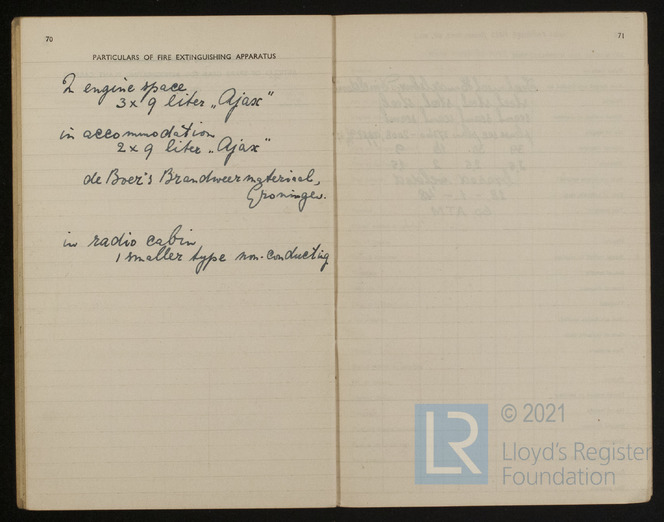 70
PARTICULARS OF FIRE EXTINGUISHING APPARATUS
engine space
3 x 9 liter „Ajax"
in accommodation
2 x 9 liter „Ajax"
de Boer's Brandweermateriaal,
Groningen.
in radio cabin
1 smaller type non-conducting
71
LR
© 2021
Lloyd's Register
Foundation